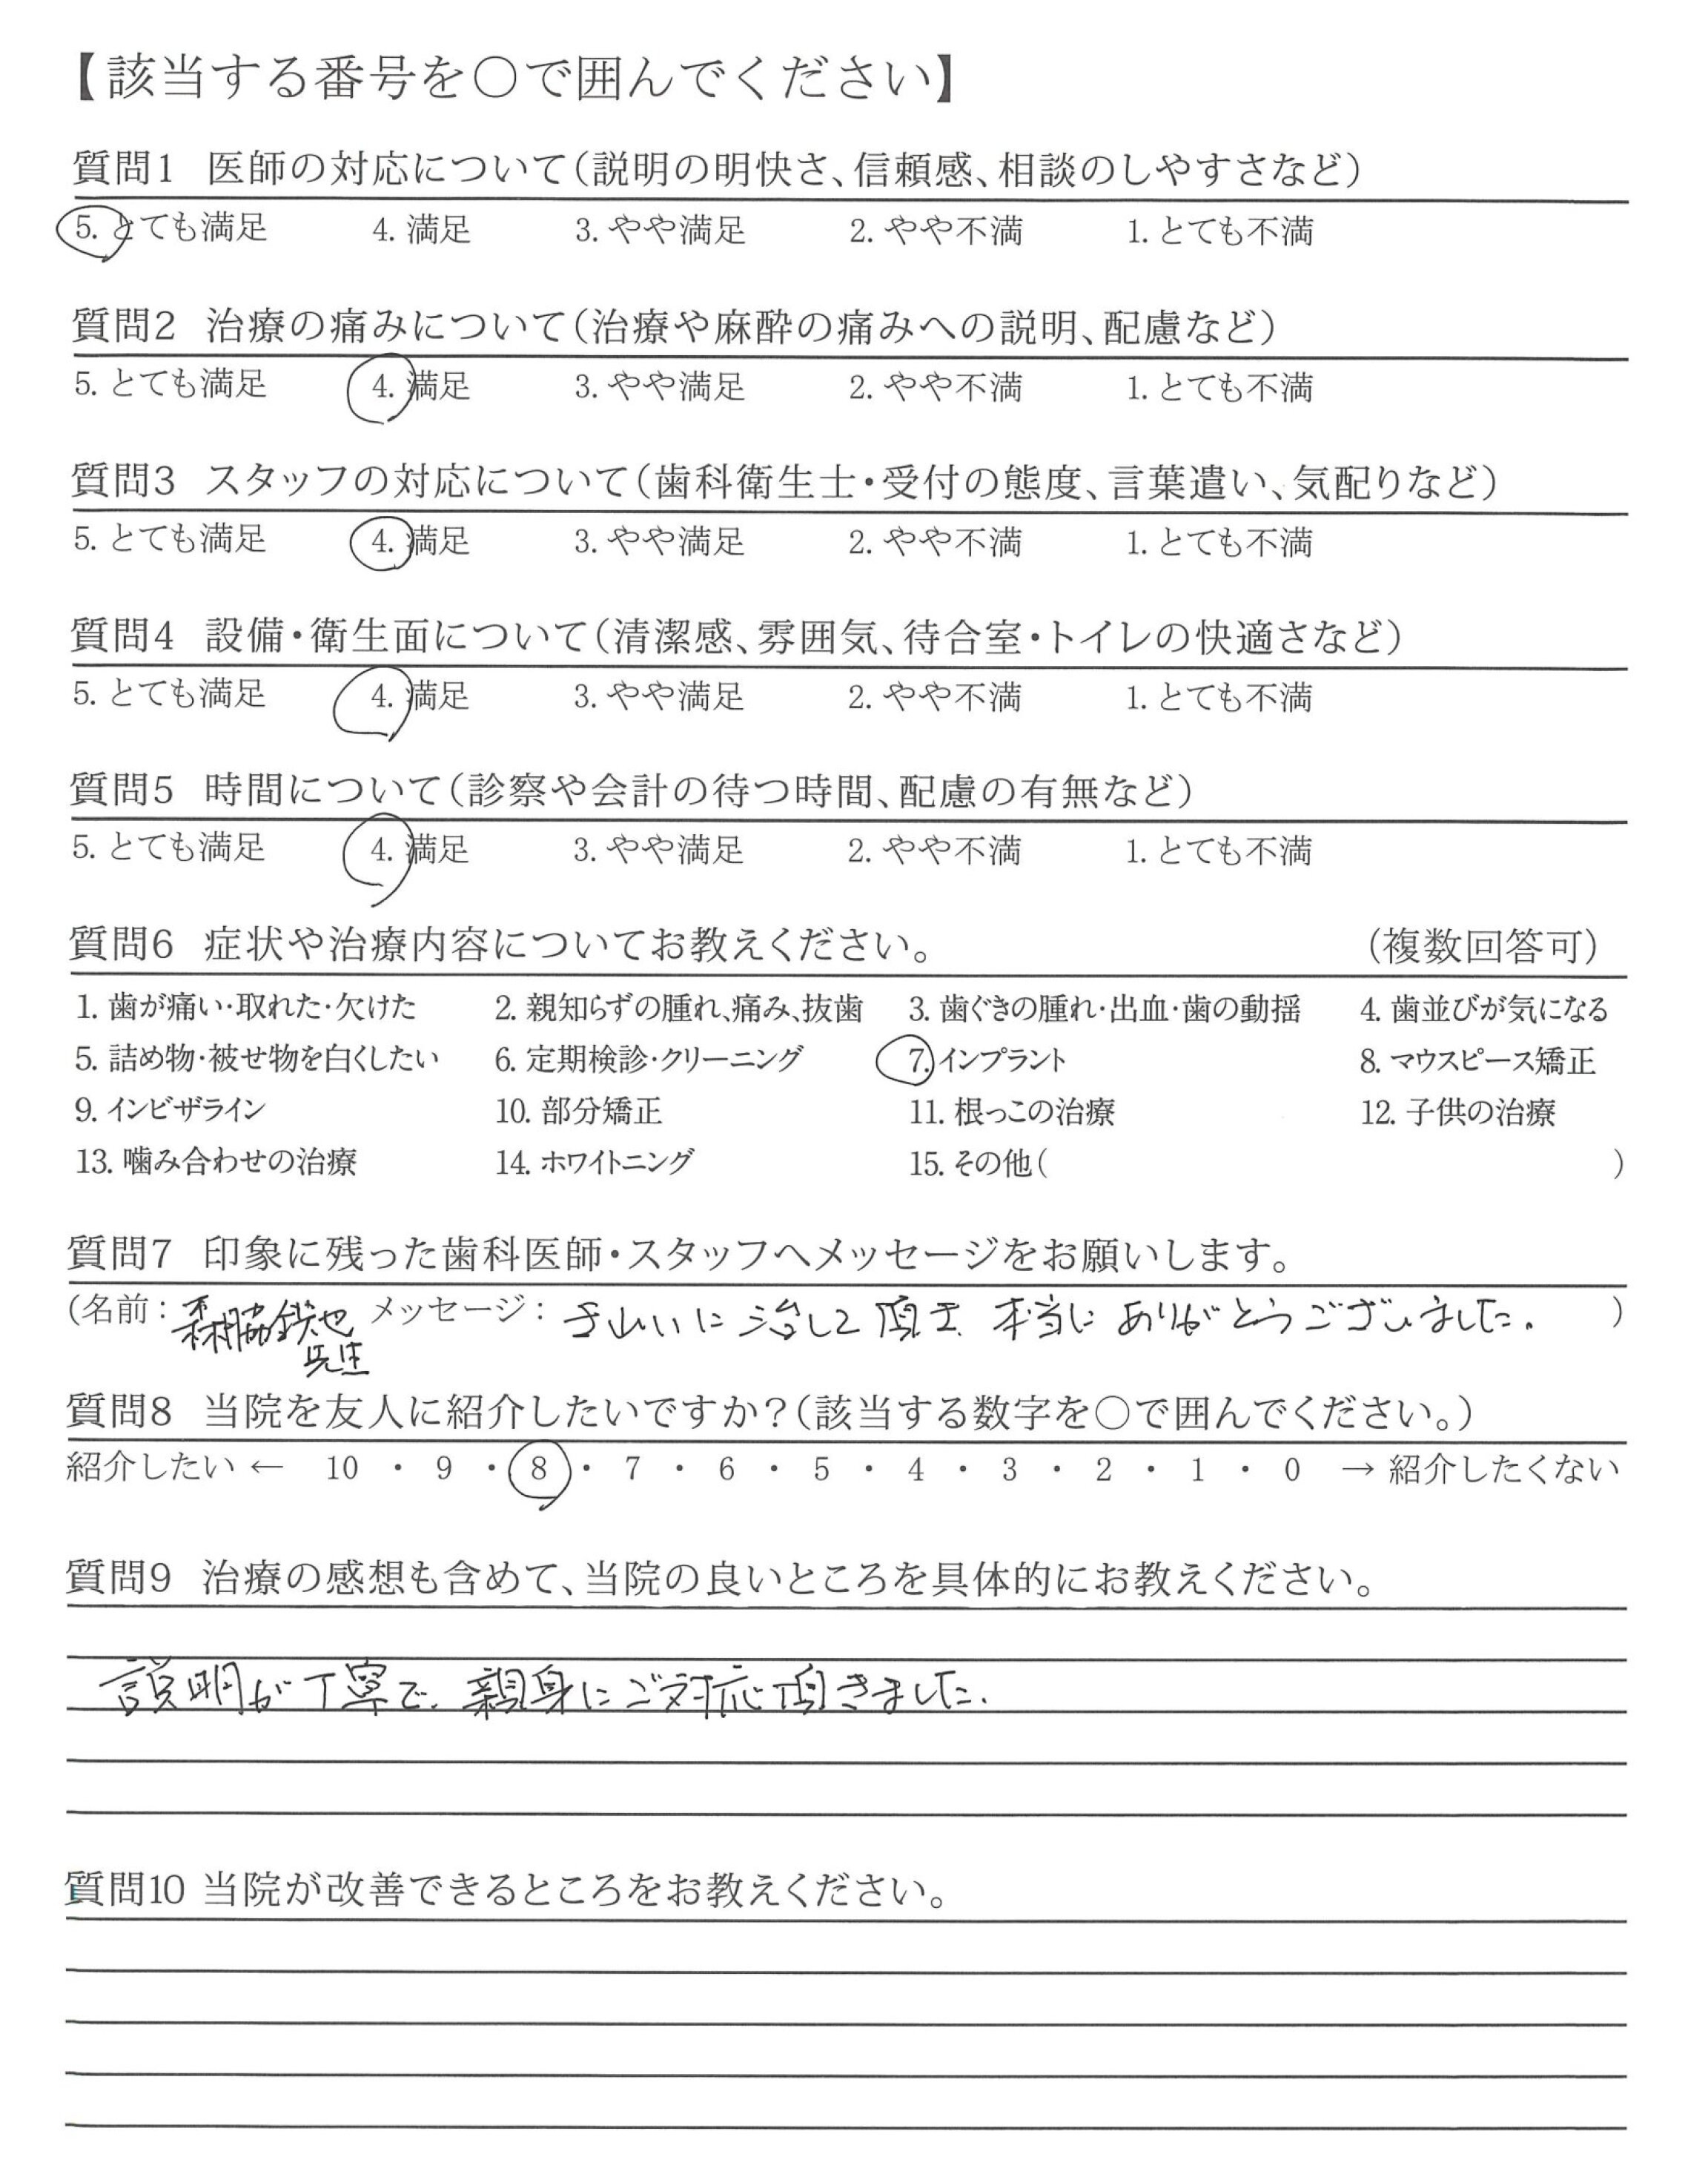 【該当する番号を○で囲んでください】
質問1 医師の対応について(説明の明快さ、信頼感、相談のしやすさなど)
5. とても満足 4. 満足 3. やや満足 2. やや不満 1. とても不満
質問2 治療の痛みについて(治療や麻酔の痛みへの説明、配慮など)
5. とても満足 4. 満足 3. やや満足 2. やや不満 1. とても不満
質問3 スタッフの対応について(歯科衛生士・受付の態度、言葉遣い、気配りなど)
5. とても満足 4. 満足 3. やや満足 2. やや不満 1. とても不満
質問4 設備・衛生面について(清潔感、雰囲気、待合室・トイレの快適さなど)
5. とても満足 4. 満足 3. やや満足 2. やや不満 1. とても不満
質問5 時間について(診察や会計の待つ時間、配慮の有無など)
5. とても満足 4. 満足 3. やや満足 2. やや不満 1. とても不満
質問6 症状や治療内容についてお教えください。 (複数回答可)
1. 歯が痛い・取れた・欠けた 2. 親知らずの腫れ、痛み、抜歯 3. 歯ぐきの腫れ・出血・歯の動揺 4. 歯並びが気になる
5. 詰め物・被せ物を白くしたい 6. 定期検診・クリーニング 7. インプラント 8. マウスピース矯正
9. インビザライン 10. 部分矯正 11. 根っこの治療 12. 子供の治療
13. 噛み合わせの治療 14. ホワイトニング 15. その他( )
質問7 印象に残った歯科医師・スタッフへメッセージをお願いします。
(名前: 森脇鉄也 メッセージ: きれいに治して頂き 本当にありがとうございました。 )
先生
質問8 当院を友人に紹介したいですか?(該当する数字を○で囲んでください。)
紹介したい ← 10 ・ 9 ・ 8 ・ 7 ・ 6 ・ 5 ・ 4 ・ 3 ・ 2 ・ 1 ・ 0 → 紹介したくない
質問9 治療の感想も含めて、当院の良いところを具体的にお教えください。
説明が丁寧で、親身にご対応頂きました。
質問10 当院が改善できるところをお教えください。